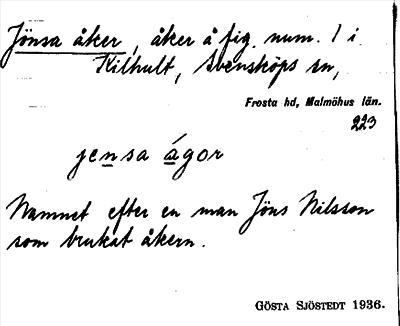 Jönsa åker, åker å fig. num. 1 i
Kilhult, Svensköps sn,
Frosta hd, Malmöhus län.
223
jensa ágor
Namnet efter en man Jöns Nilsson
som brukat åkern.
GÖSTA SJÖSTEDT 1936.